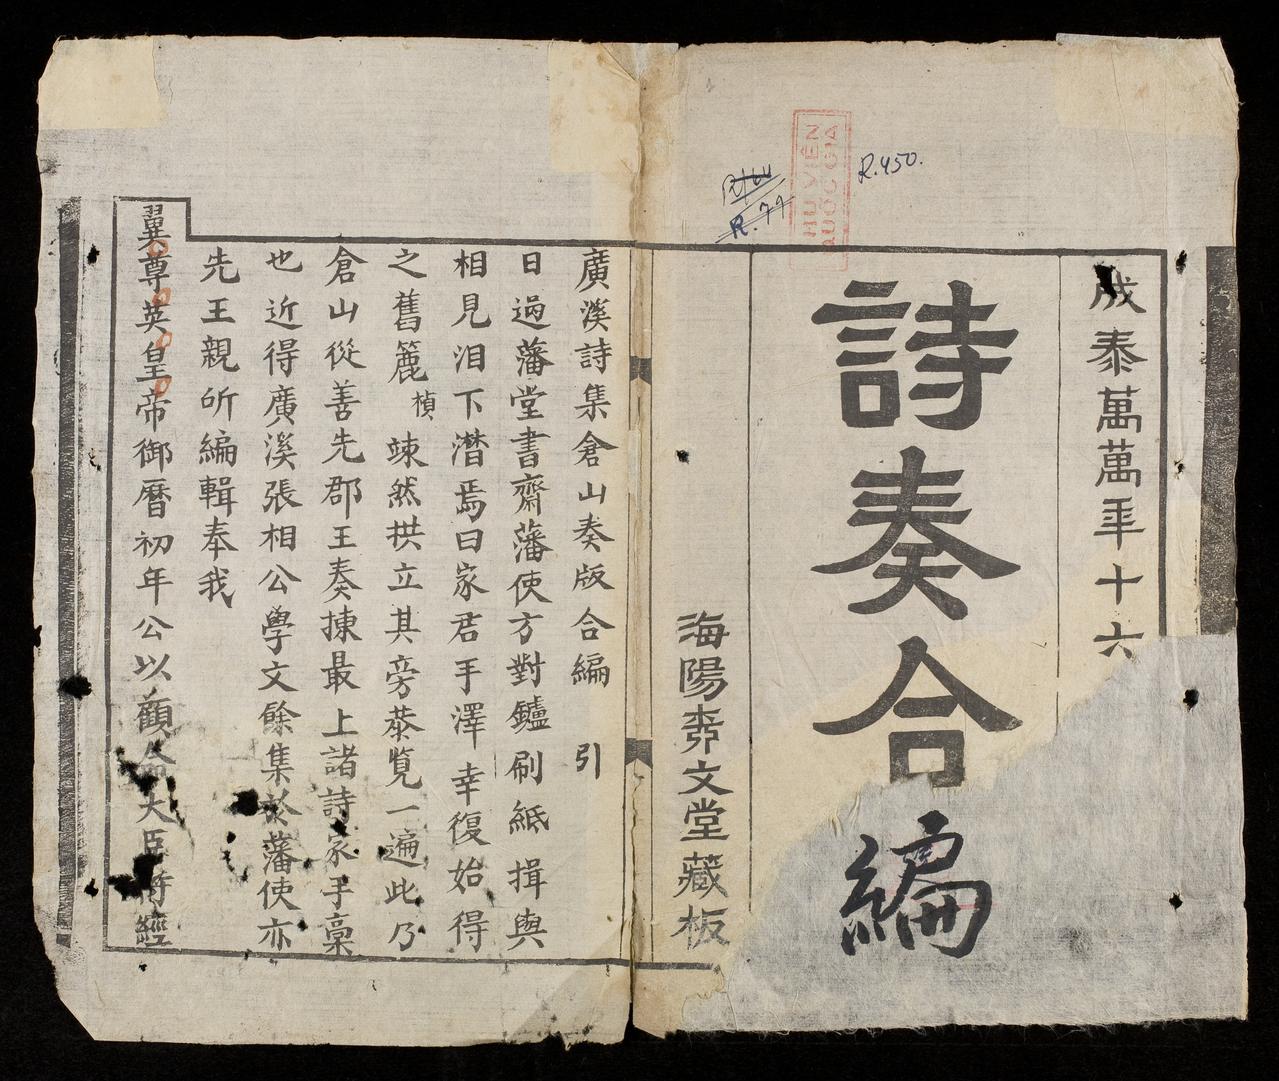 成泰萬萬年十六
詩奏合編
海陽 文堂藏板
THƯ VIỆN
QUỐC GIA
R.450.
R.77
廣溪詩集倉山奏版合編 引
日過藩堂書齋藩使方對鑪刷紙揖與
相見泪下潛焉曰家君手澤幸復始得
之舊簏楨竦然拱立其旁恭覽一遍此乃
倉山從善先郡王奏揀最上諸詩家手稾
也近得廣溪張相公學文餘集於藩使亦
先王親所編輯奉我
翼尊英皇帝御曆初年公以顧命大臣 經